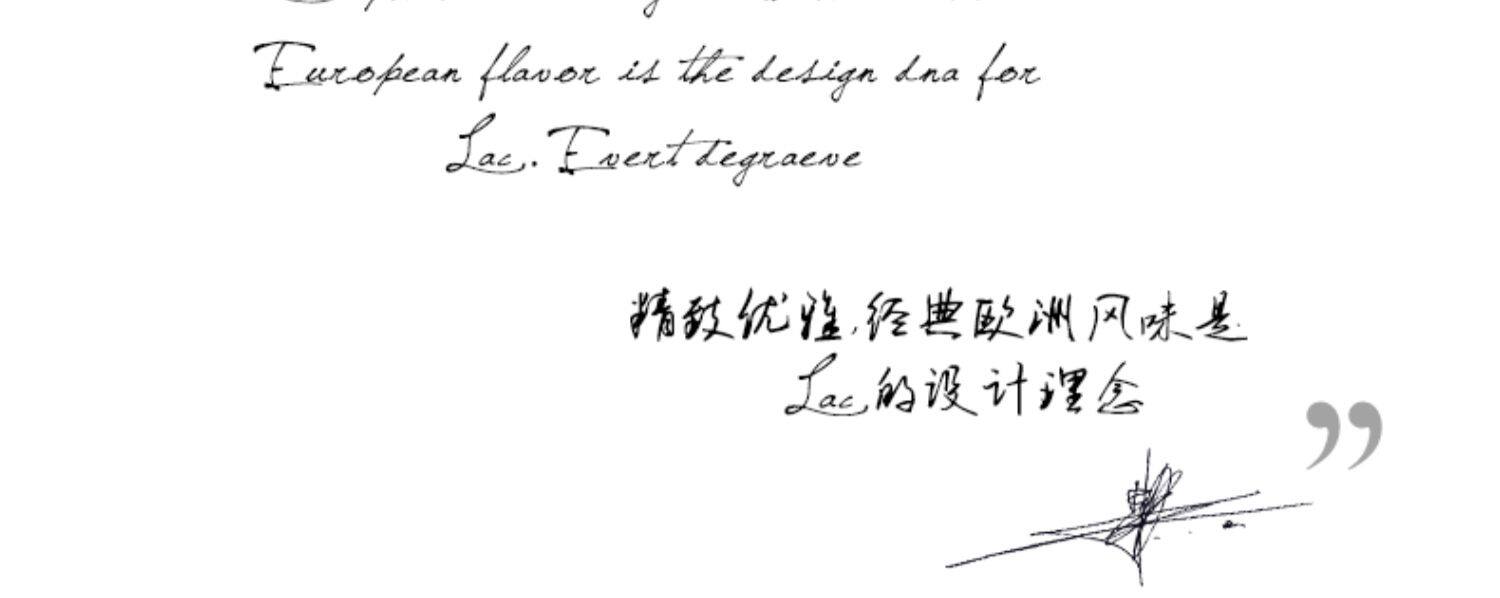 European flavor is the design dna for
Lac. Evert degraeve
精致优雅,经典欧洲风味是
Lac的设计理念
”